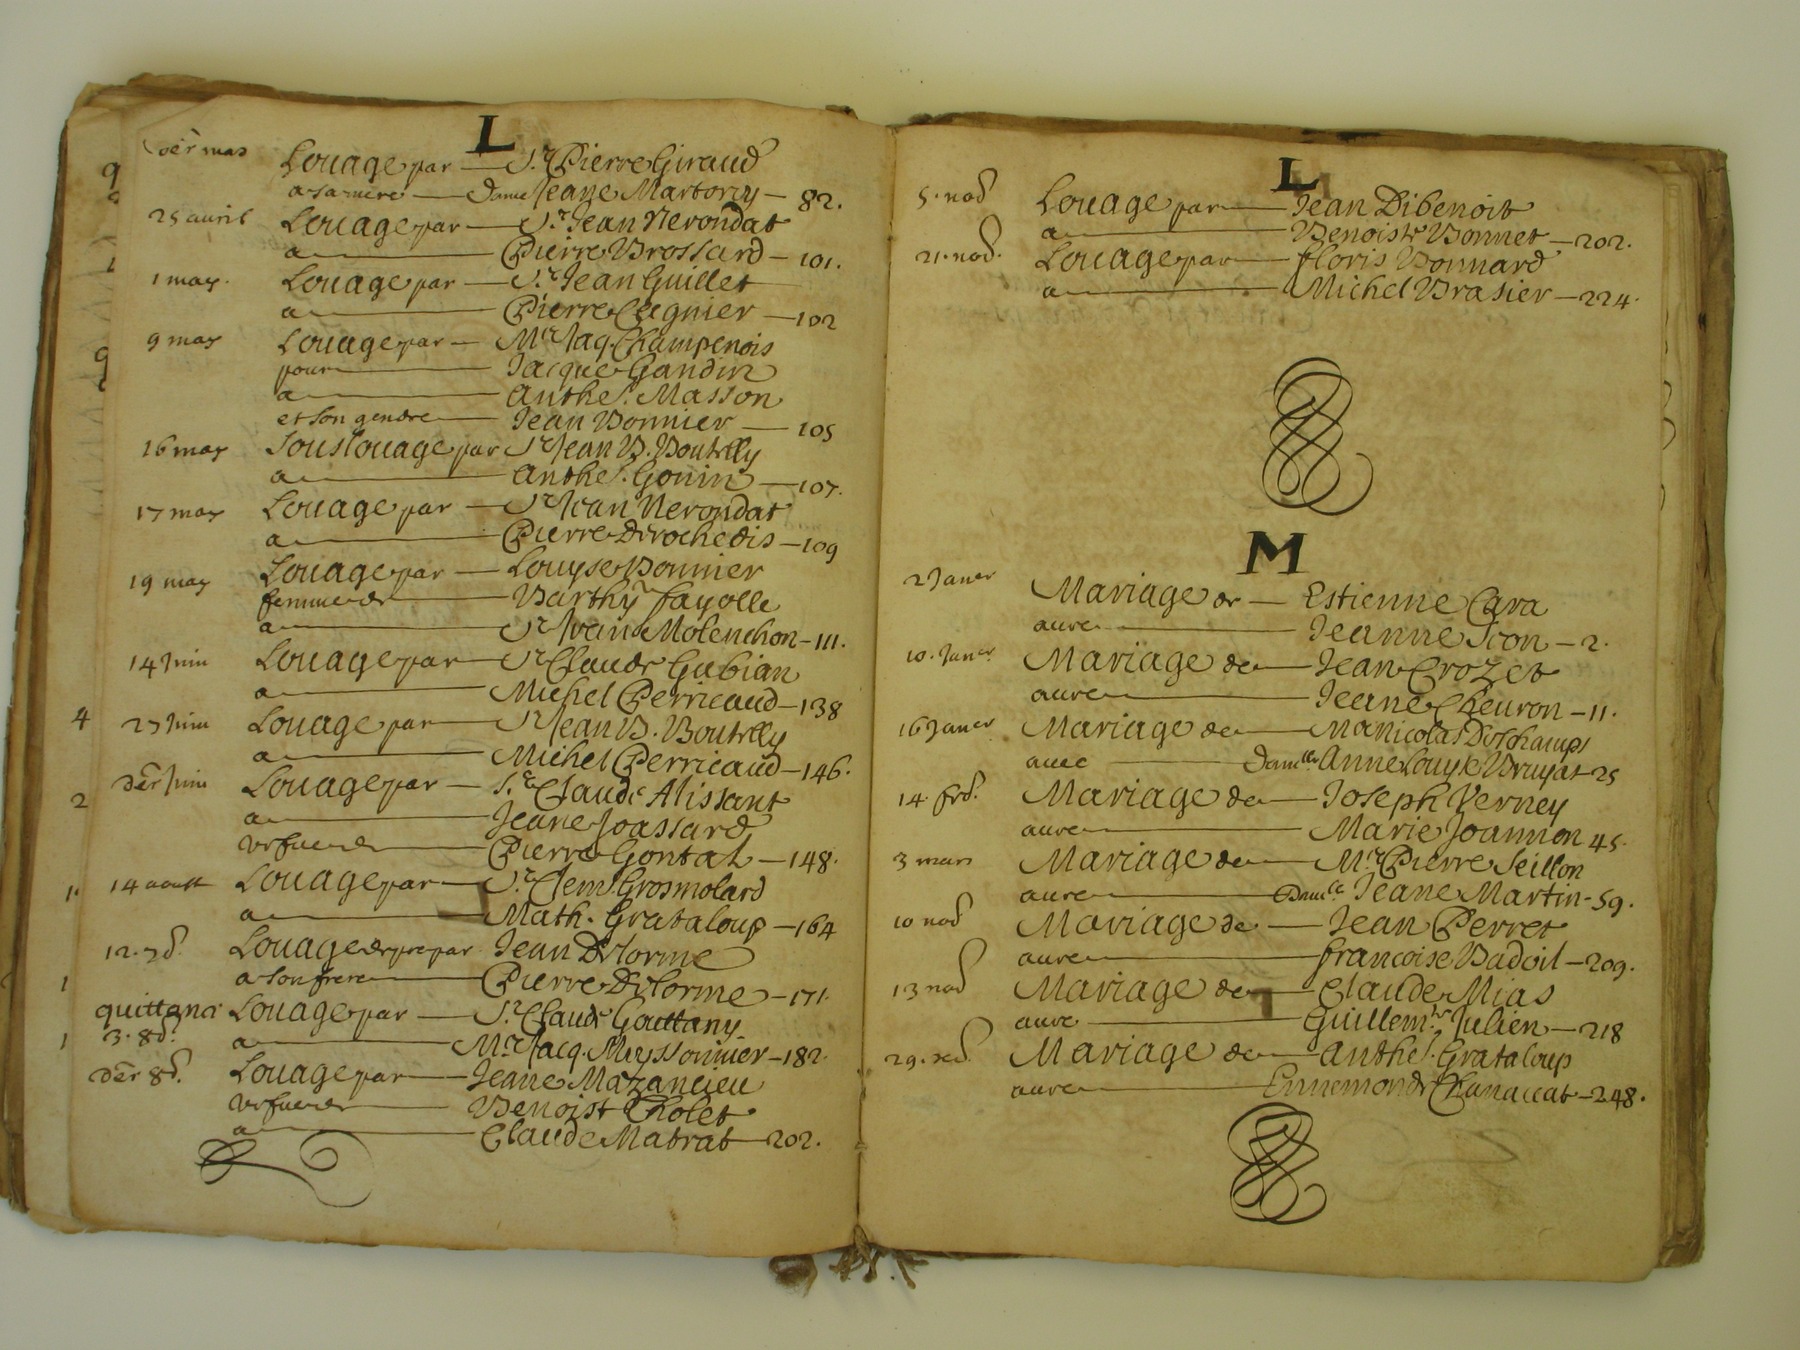 L
der mars Louage par — Sr. Pierre Giraud
a sa mere — Dame Jeane Martoray — 82.
25 avril Louage par — Sr. Jean Nerondat
a — Pierre Brossard — 101.
1 may. Louage par — Sr. Jean Guillet
a — Pierre — 102
9 may Louage par — Mr. Jaq. Champenois
pour — Jacque Gandin
a — Anthe. Masson
et son gendre — Jean Bonnier — 105
16 may Souslouage par Sr. Jean B. Boutelly
a — Anthe. Gonin — 107.
17 may Louage par — Sr. Jean Nerondat
a — Pierre Derochedis — 109
19 may Louage par — Louyse Bonnier
femme de — Barthy. fayolle
a — Sr. Molenchon — 111.
14 Juin Louage par — Sr. Claude Gubian
a — Michel Perricaud — 138
4 27 Juin Louage par — Sr. Jean B. Boutelly
a — Michel Perricaud — 146.
2 der Juin Louage par — Sr. Claude Alissant
a — Jeane Joassard
vefue de — Pierre Gontal — 148.
1. 14 aoust Louage par — Sr. Clem. Grosmolard
a — Math. Grataloup — 164
12. 7d. Louage de pre par Jean Delorme
1 a son frere — Pierre Delorme — 171.
quittance Louage par — Sr. Claude Gouttany
1 3. 8d. a — Mr. Jacq. Meyssonnier — 182.
der 8d. Louage par — Jeane Mazancieu
vefue de — Benoist Cholet
a — Claude Matrat — 202.
L
5. nod Louage par — Jean Dibenoit
a — Benoiste Bonnet — 202.
21. nod. Louage par — floris Bonnard
a — Michel Brasier — 224.
M
2 Janer Mariage de — Estienne Cara
avec — Jeanne Icon — 2.
10. Janer Mariage de — Jean Crozet
avec — Jeane Cheuron — 11.
16 Janer Mariage de — Nicolas Deschamps
avec — Damlle Anne Louyse Bruyat — 25
14. frd. Mariage de — Joseph Verney
avec — Marie Joannon 45.
3 mars Mariage de — Mr. Pierre Seillon
avec — Damlle Jeane Martin — 59.
10 nod Mariage de — Jean Perret
avec — francoise Badoil — 209.
13 nod Mariage de — Claude Mias
avec — Guillemte Julien — 218
29. xd. Mariage de — Anthe. Grataloup
avec — Ennemonde Chanaccat — 248.